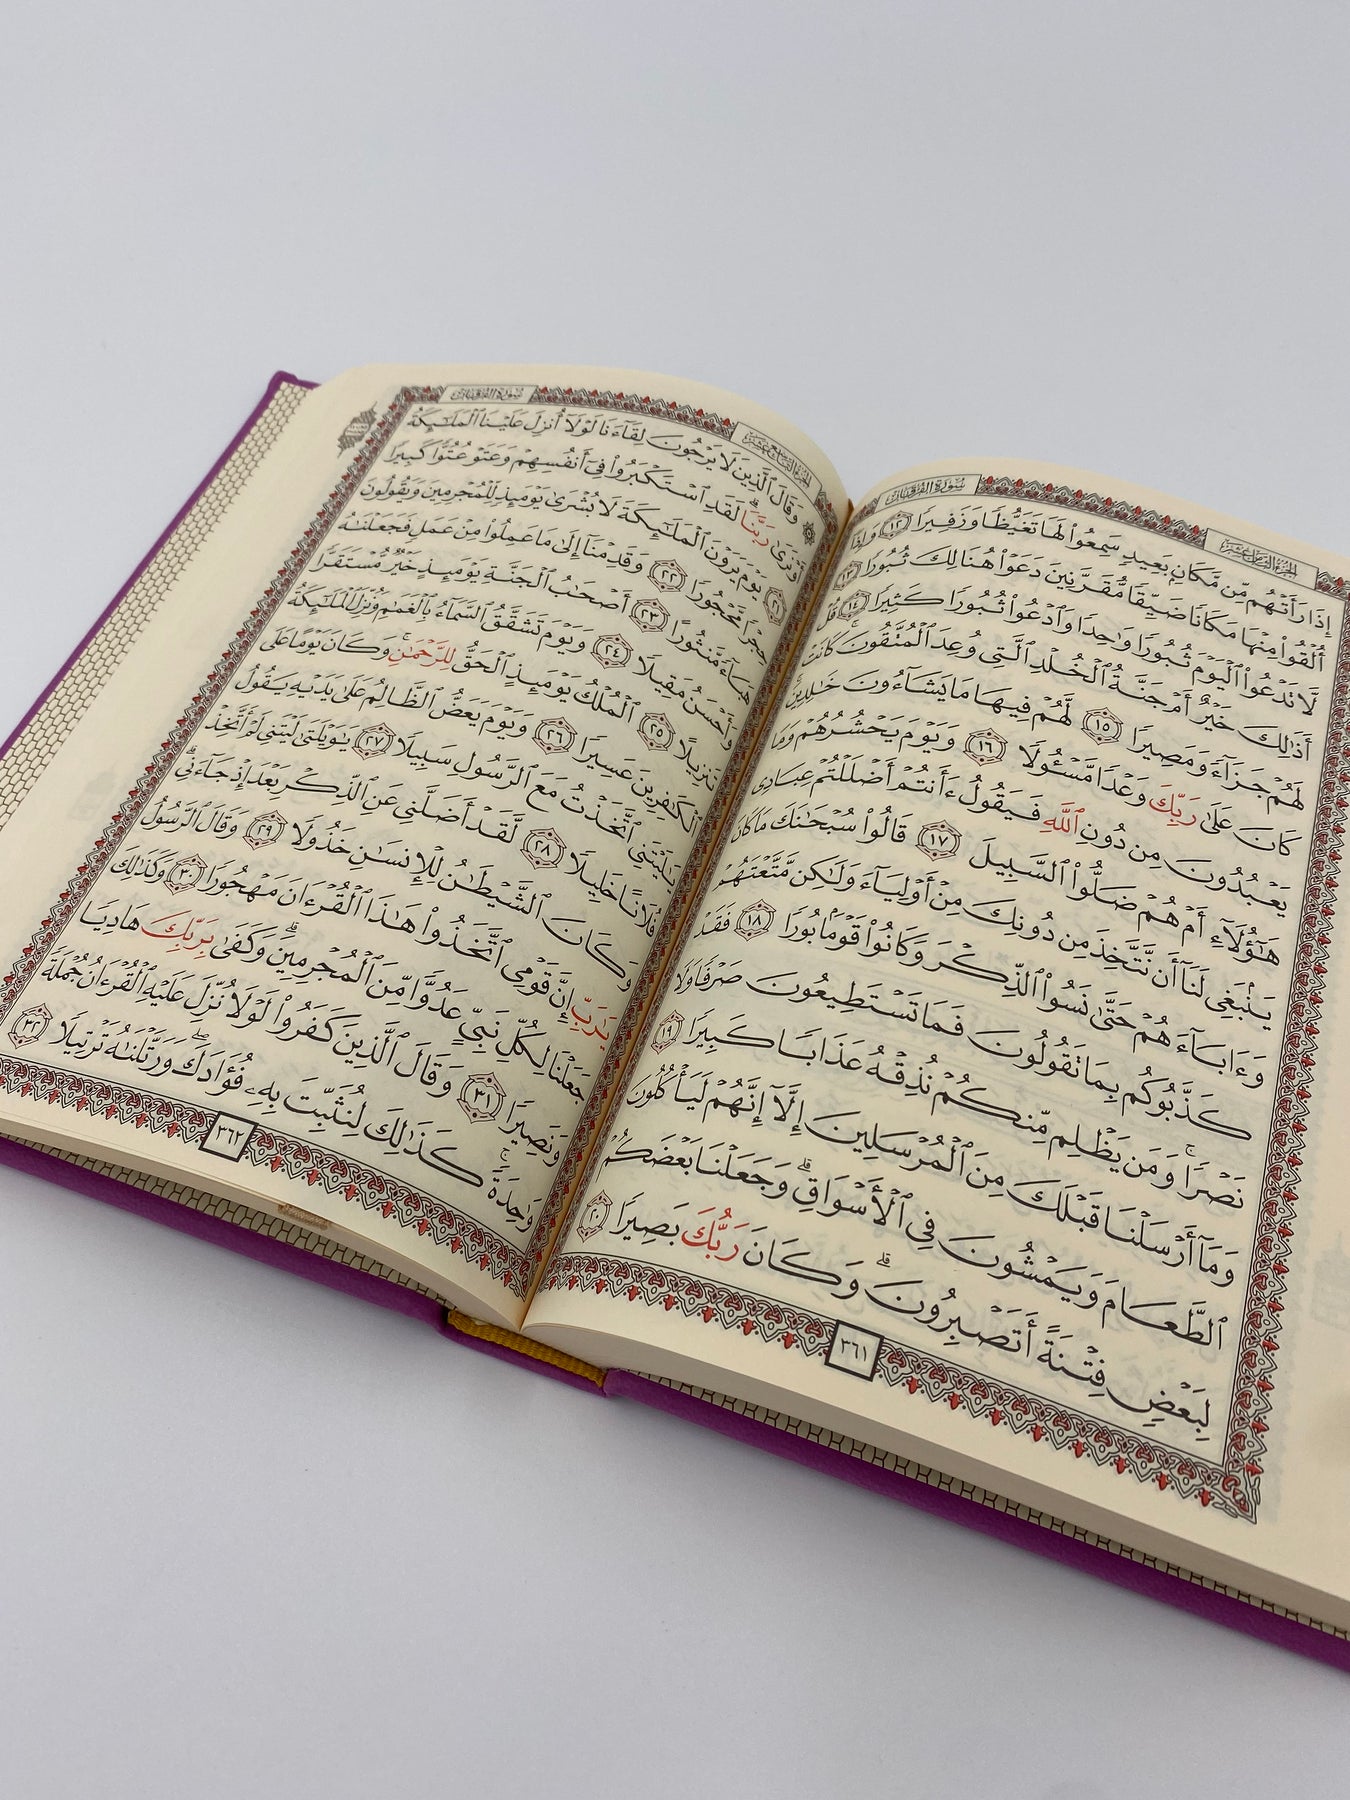 سورة الفرقان
الجزء الثامن عشر
إِذَا رَأَتْهُم مِّن مَّكَانٍ بَعِيدٍ سَمِعُوا۟ لَهَا تَغَيُّظًا وَزَفِيرًا ١٢ وَإِذَآ
أُلْقُوا۟ مِنْهَا مَكَانًا ضَيِّقًا مُّقَرَّنِينَ دَعَوْا۟ هُنَالِكَ ثُبُورًا ١٣
لَّا تَدْعُوا۟ ٱلْيَوْمَ ثُبُورًا وَٰحِدًا وَٱدْعُوا۟ ثُبُورًا كَثِيرًا ١٤ قُلْ
أَذَٰلِكَ خَيْرٌ أَمْ جَنَّةُ ٱلْخُلْدِ ٱلَّتِى وُعِدَ ٱلْمُتَّقُونَ ۚ كَانَتْ
لَهُمْ جَزَآءً وَمَصِيرًا ١٥ لَّهُمْ فِيهَا مَا يَشَآءُونَ خَٰلِدِينَ ۚ
كَانَ عَلَىٰ رَبِّكَ وَعْدًا مَّسْـُٔولًا ١٦ وَيَوْمَ يَحْشُرُهُمْ وَمَا
يَعْبُدُونَ مِن دُونِ ٱللَّهِ فَيَقُولُ ءَأَنتُمْ أَضْلَلْتُمْ عِبَادِى
هَٰٓؤُلَآءِ أَمْ هُمْ ضَلُّوا۟ ٱلسَّبِيلَ ١٧ قَالُوا۟ سُبْحَٰنَكَ مَا كَانَ
يَنۢبَغِى لَنَآ أَن نَّتَّخِذَ مِن دُونِكَ مِنْ أَوْلِيَآءَ وَلَٰكِن مَّتَّعْتَهُمْ
وَءَابَآءَهُمْ حَتَّىٰ نَسُوا۟ ٱلذِّكْرَ وَكَانُوا۟ قَوْمًۢا بُورًا ١٨ فَقَدْ
كَذَّبُوكُم بِمَا تَقُولُونَ فَمَا تَسْتَطِيعُونَ صَرْفًا وَلَا
نَصْرًا ۚ وَمَن يَظْلِم مِّنكُمْ نُذِقْهُ عَذَابًا كَبِيرًا ١٩
وَمَآ أَرْسَلْنَا قَبْلَكَ مِنَ ٱلْمُرْسَلِينَ إِلَّآ إِنَّهُمْ لَيَأْكُلُونَ
ٱلطَّعَامَ وَيَمْشُونَ فِى ٱلْأَسْوَاقِ ۗ وَجَعَلْنَا بَعْضَكُمْ
لِبَعْضٍ فِتْنَةً أَتَصْبِرُونَ ۗ وَكَانَ رَبُّكَ بَصِيرًا ٢٠
٣٦١
سورة الفرقان
الجزء التاسع عشر
وَقَالَ ٱلَّذِينَ لَا يَرْجُونَ لِقَآءَنَا لَوْلَآ أُنزِلَ عَلَيْنَا ٱلْمَلَٰٓئِكَةُ
أَوْ نَرَىٰ رَبَّنَا ۗ لَقَدِ ٱسْتَكْبَرُوا۟ فِىٓ أَنفُسِهِمْ وَعَتَوْ عُتُوًّا كَبِيرًا
٢١ يَوْمَ يَرَوْنَ ٱلْمَلَٰٓئِكَةَ لَا بُشْرَىٰ يَوْمَئِذٍ لِّلْمُجْرِمِينَ وَيَقُولُونَ
حِجْرًا مَّحْجُورًا ٢٢ وَقَدِمْنَآ إِلَىٰ مَا عَمِلُوا۟ مِنْ عَمَلٍ فَجَعَلْنَٰهُ
هَبَآءً مَّنثُورًا ٢٣ أَصْحَٰبُ ٱلْجَنَّةِ يَوْمَئِذٍ خَيْرٌ مُّسْتَقَرًّا
وَأَحْسَنُ مَقِيلًا ٢٤ وَيَوْمَ تَشَقَّقُ ٱلسَّمَآءُ بِٱلْغَمَٰمِ وَنُزِّلَ ٱلْمَلَٰٓئِكَةُ
تَنزِيلًا ٢٥ ٱلْمُلْكُ يَوْمَئِذٍ ٱلْحَقُّ لِلرَّحْمَٰنِ ۚ وَكَانَ يَوْمًا عَلَى
ٱلْكَٰفِرِينَ عَسِيرًا ٢٦ وَيَوْمَ يَعَضُّ ٱلظَّالِمُ عَلَىٰ يَدَيْهِ يَقُولُ
يَٰلَيْتَنِى ٱتَّخَذْتُ مَعَ ٱلرَّسُولِ سَبِيلًا ٢٧ يَٰوَيْلَتَىٰ لَيْتَنِى لَمْ أَتَّخِذْ
فُلَانًا خَلِيلًا ٢٨ لَّقَدْ أَضَلَّنِى عَنِ ٱلذِّكْرِ بَعْدَ إِذْ جَآءَنِى ۗ
وَكَانَ ٱلشَّيْطَٰنُ لِلْإِنسَٰنِ خَذُولًا ٢٩ وَقَالَ ٱلرَّسُولُ
يَٰرَبِّ إِنَّ قَوْمِى ٱتَّخَذُوا۟ هَٰذَا ٱلْقُرْءَانَ مَهْجُورًا ٣٠ وَكَذَٰلِكَ
جَعَلْنَا لِكُلِّ نَبِىٍّ عَدُوًّا مِّنَ ٱلْمُجْرِمِينَ ۗ وَكَفَىٰ بِرَبِّكَ هَادِيًا
وَنَصِيرًا ٣١ وَقَالَ ٱلَّذِينَ كَفَرُوا۟ لَوْلَا نُزِّلَ عَلَيْهِ ٱلْقُرْءَانُ جُمْلَةً
وَٰحِدَةً ۚ كَذَٰلِكَ لِنُثَبِّتَ بِهِۦ فُؤَادَكَ ۖ وَرَتَّلْنَٰهُ تَرْتِيلًا ٣٢
٣٦٢